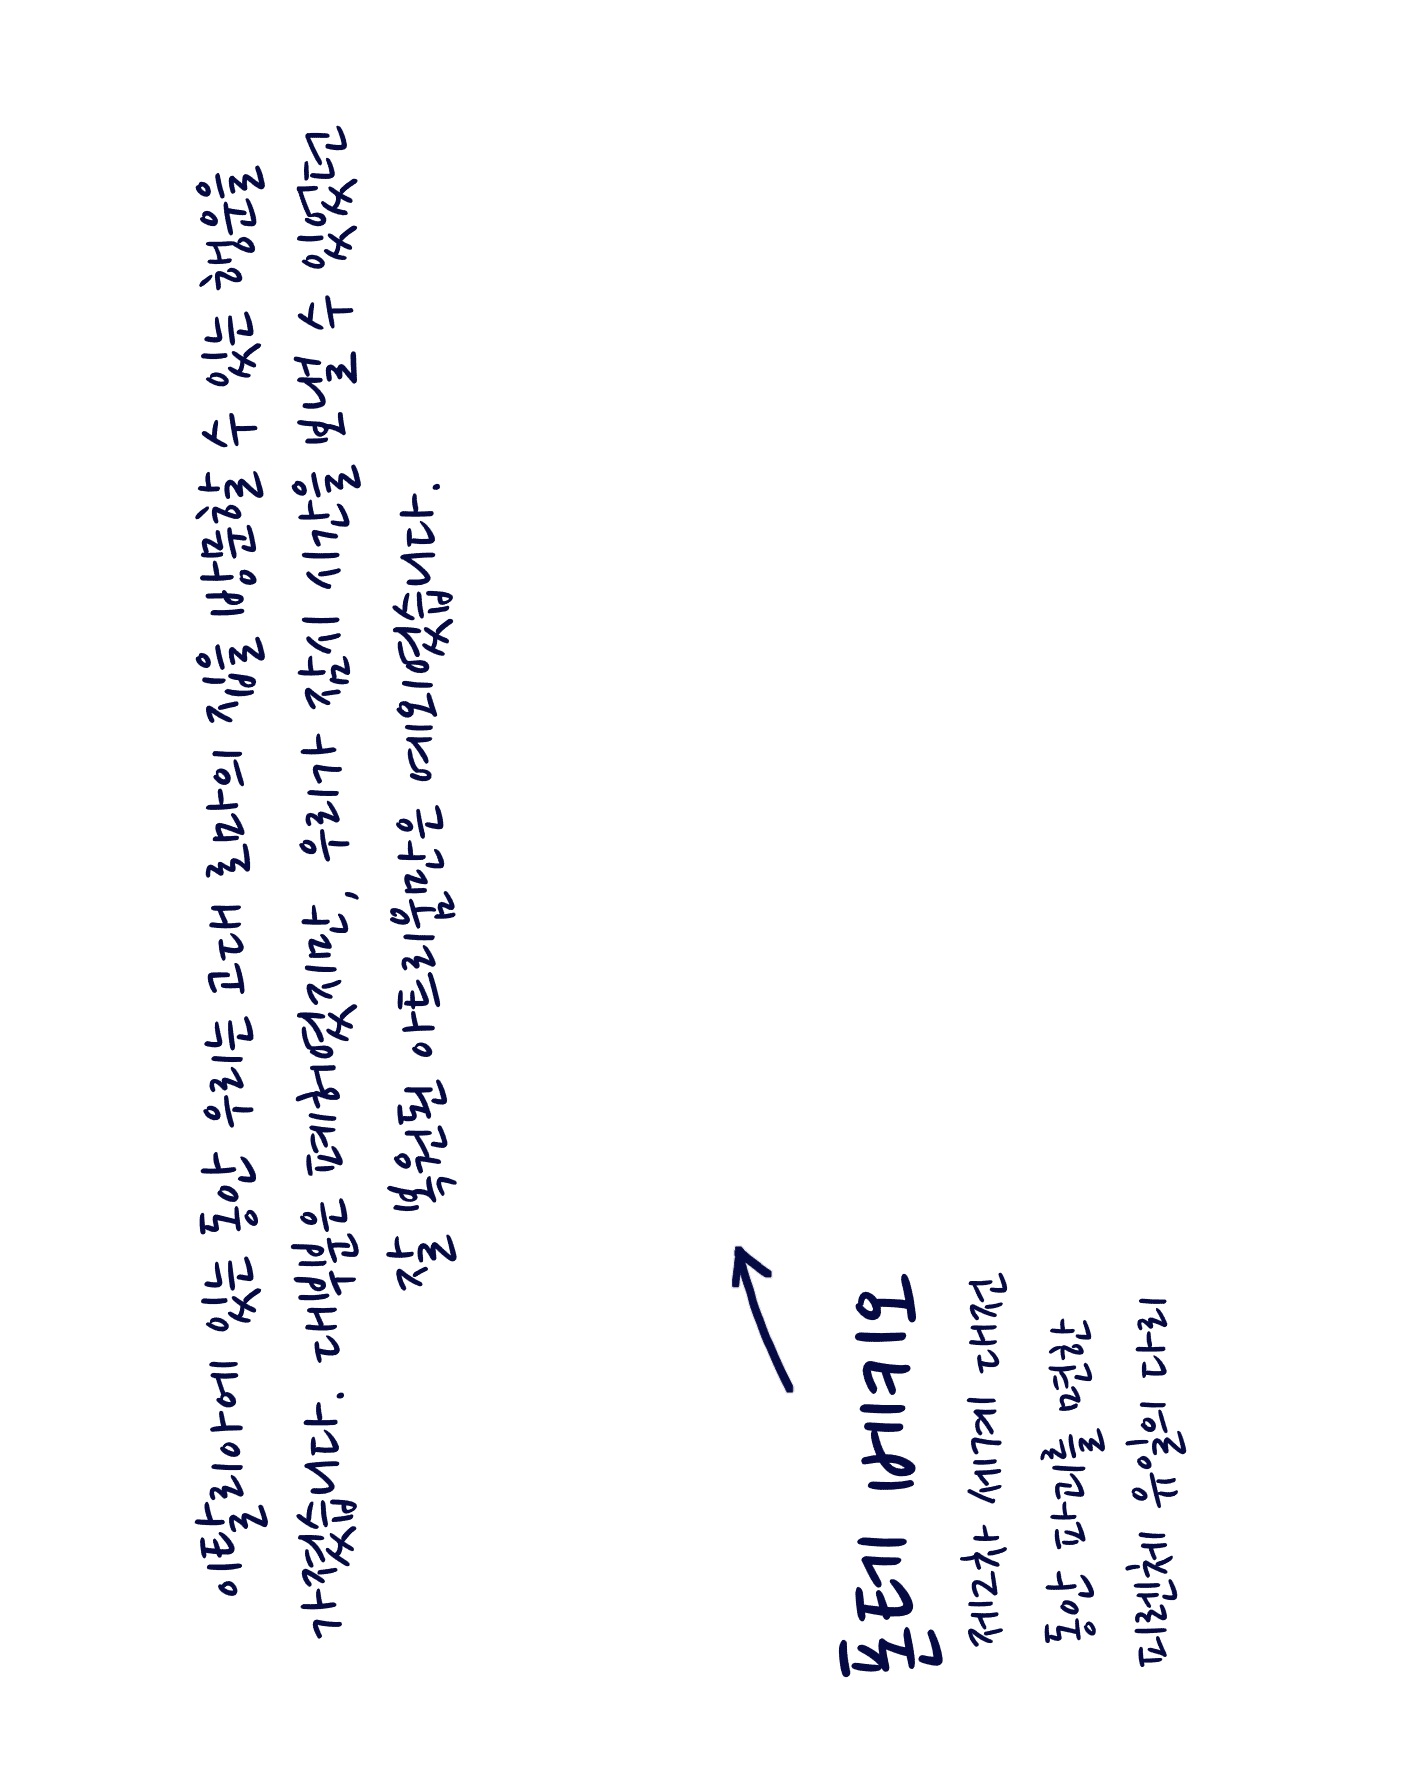 이탈리아에 있는 동안 우리는 고대 로마의 집을 방문할 수 있는 행운을
가졌습니다. 대부분은 폐허였지만, 우리가 잠시 시간을 보낼 수 있었던
잘 복원된 아트리움만은 예외였습니다.
폰테 베키오
제2차 세계 대전
동안 파괴를 면한
피렌체 유일의 다리